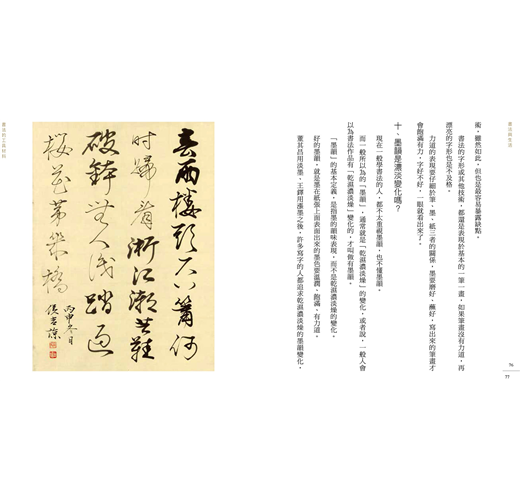 書法與生活
術。雖然如此,但也是最容易暴露缺點。
書法的字形或其他技術,都還是表現於基本的一筆一畫,如果筆畫沒有力道,再
漂亮的字形也是不及格。
力道的表現要仔細於筆、墨、紙三者的關係,墨要磨好、蘸好,寫出來的筆畫才
會飽滿有力,字好不好,一眼就看出來了。
十、墨韻是濃淡變化嗎?
現在一般學書法的人,都不太重視墨韻,也不懂墨韻。
而一般所以為的「墨韻」,通常就是「乾濕濃淡燥」的變化,或者說,一般人會
以為書法作品有「乾濕濃淡燥」變化的,才叫做有墨韻。
「墨韻」的基本定義,是指墨的韻味表現,而不是乾濕濃淡燥的變化。
好的墨韻,就是墨在紙張上面表面出來的墨色要溫潤、飽滿、有力道。
董其昌用淡墨,王鐸用漲墨之後,許多寫字的人都追求乾濕濃淡燥的墨韻變化,
76
77
春雨樓頭尺八簫何
時歸看浙江潮芒鞋
破鉢無人識踏過
櫻花第幾橋
丙申冬月
侯吉諒
書法的工具材料